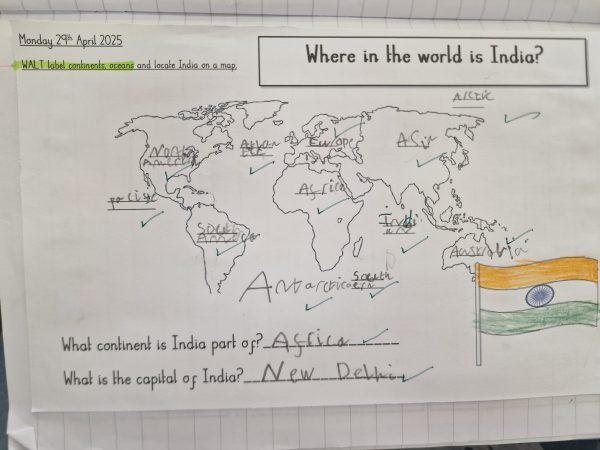 Monday 29th April 2025
WALT label continents, oceans and locate India on a map.
Where in the world is India?
Arctic
North
America
Atlan
tic
Europe
Asia
Africa
South
America
Indi
an
Australia
Antarctica
South
ern
What continent is India part of? Africa
What is the capital of India? New Delhi